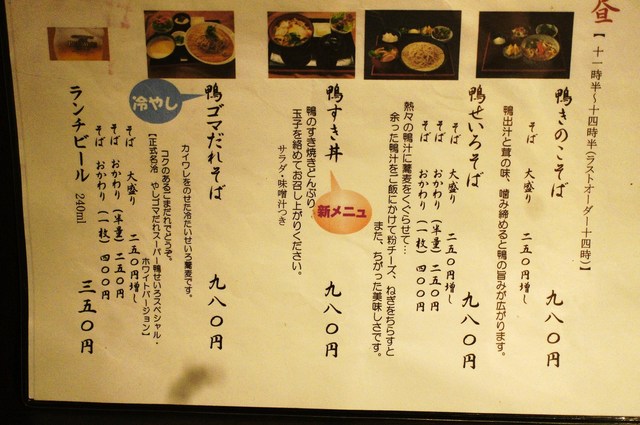 昼【十一時半～十四時半(ラストオーダー十四時)】
鴨きのこそば 九八〇円
鴨出汁と茸の味、噛み締めると鴨の旨みが広がります。
そば 大盛り 二五〇円増し
鴨せいろそば 九八〇円
そば 大盛り 二五〇円増し
そば おかわり(半量)二五〇円
そば おかわり(一枚)四〇〇円
熱々の鴨汁に蕎麦をくぐらせて…
余った鴨汁をご飯にかけて粉チーズ、ねぎをちらすと
また、ちがった美味しさです。
新メニュ
鴨すき丼 九八〇円
鴨のすき焼きどんぶり
玉子を絡めてお召し上がりください。
サラダ・味噌汁つき
冷やし
鴨ゴマだれそば 九八〇円
カイワレをのせた冷たいせいろ蕎麦です。
コクのあるごまだれでどうぞ。
【正式名 冷やしゴマだれスーパー鴨せいろスペシャル・
ホワイトバージョン】
そば 大盛り 二五〇円増し
そば おかわり(半量)二五〇円
そば おかわり(一枚)四〇〇円
ランチビール 240ml 三五〇円